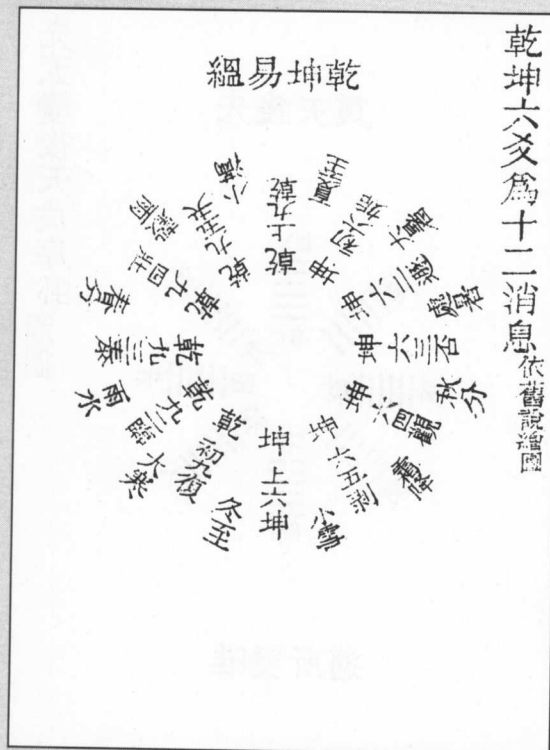 乾坤六爻爲十二消息
依舊說繪圖
乾坤易縕
乾初九復
冬至
乾九二臨
大寒
乾九三泰
雨水
乾九四壯
春分
乾九五夬
穀雨
乾上九乾
小滿
坤初六姤
夏至
坤六二遯
大暑
坤六三否
處暑
坤六四觀
秋分
坤六五剥
霜降
坤上六坤
小雪